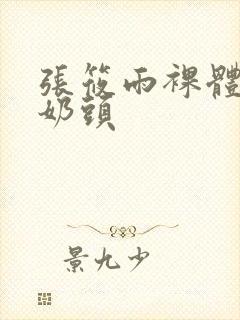 張筱雨裸體
奶頭
景九少